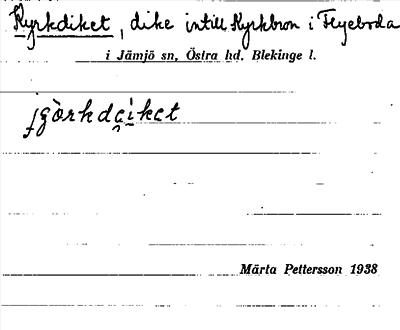 Kyrkdiket, dike intill Kyrkbron i Flyeboda
i Jämjö sn, Östra hd, Blekinge l.
Märta Pettersson 1938